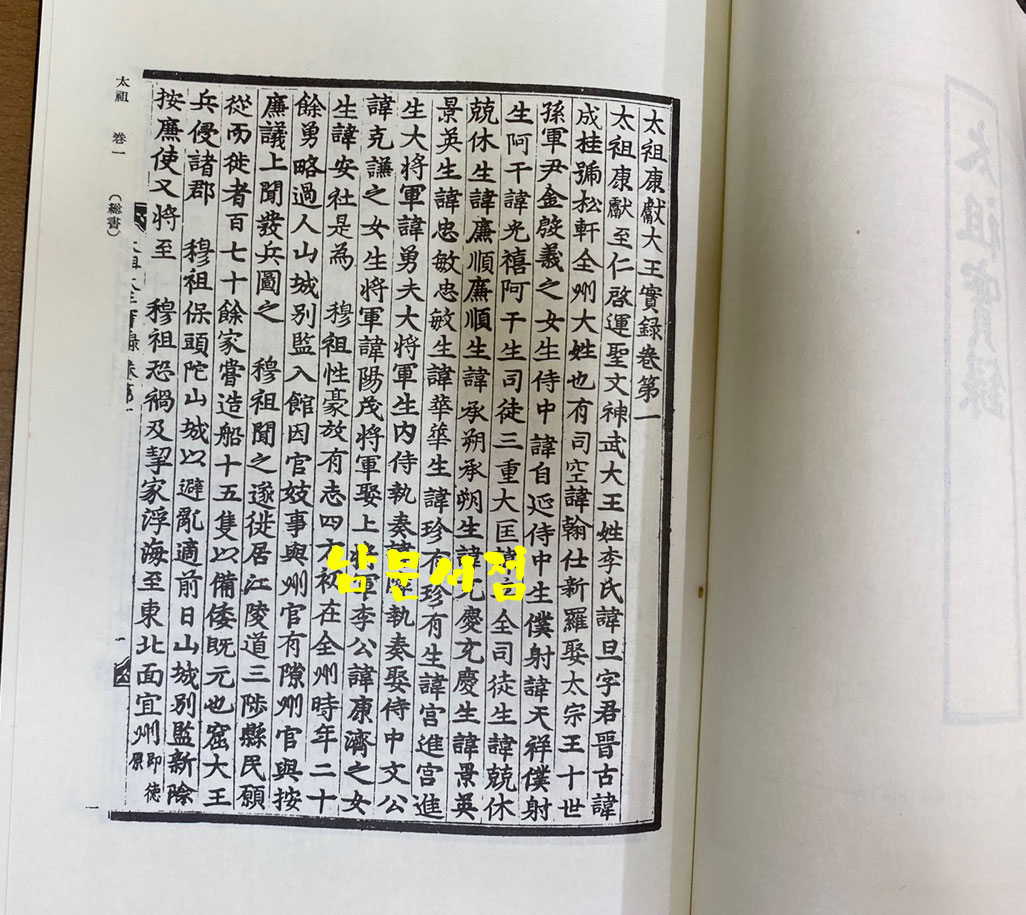 太祖康獻大王實錄卷第一
太祖康獻至仁啓運聖文神武大王姓李氏諱旦字君晉古諱
成桂號松軒全州大姓也有司空諱翰仕新羅娶太宗王十世
孫軍尹金殷義之女生侍中諱自延侍中生僕射諱天祥僕射
生阿干諱光禧阿干生司徒三重大匡全司徒生諱兢休
兢休生諱廉順廉順生諱承朔承朔生諱充慶充慶生諱景英
景英生諱忠敏忠敏生諱華華生諱珍有珍有生諱宮進宮進
生大將軍諱勇夫大將軍生內侍執奏執奏娶侍中文公
諱克謙之女生將軍諱陽茂將軍娶上將軍李公諱康濟之女
生諱安社是為 穆祖性豪放有志四方初在全州時年二十
餘勇略過人山城別監入館因官妓事與州官有隙州官與按
廉議上聞發兵圖之 穆祖聞之遂徙居江陵道三陟縣民願
從而徙者百七十餘家嘗造船十五隻以備倭既元也窟大王
兵侵諸郡 穆祖保頭陀山城以避亂適前日山城別監新除
按廉使又將至 穆祖恐禍及挈家浮海至東北面宜州即德原
太祖 卷一 (總書)
一
남문서점